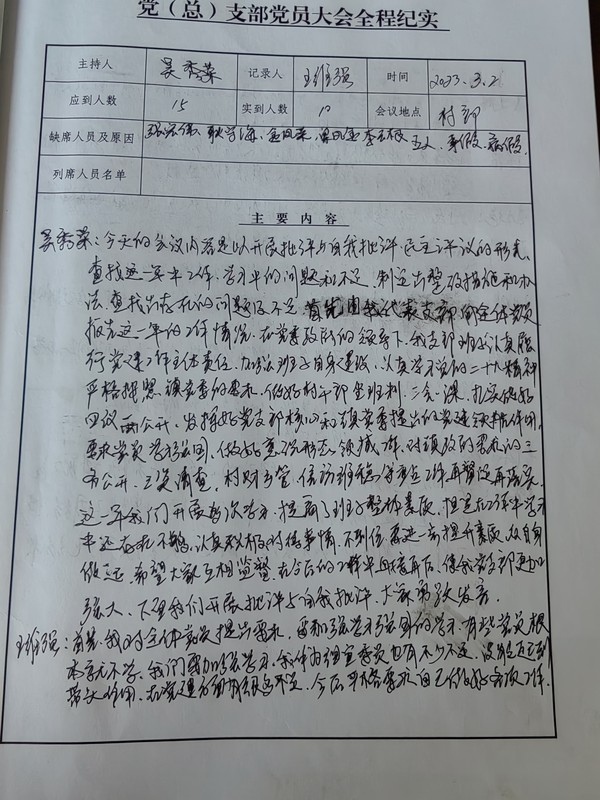 党（总）支部党员大会全程纪实
主持人 吴秀荣 记录人 王维强 时间 2023.3.2
应到人数 15 实到人数 10 会议地点 村部
缺席人员及原因 五人、事假、病假
列席人员名单
主要内容
吴秀荣：今天的会议内容是以开展批评与自我批评、民主评议的形式、
查找这一年中工作、学习中的问题和不足、制定出整改措施和办
法、查找出存在的问题及不足、首先由我代表支部向全体党员
报告这一年的工作情况、在党委政府的领导下、我支部班子认真履
行党建工作主体责任、加强班子自身建设、认真学习党的二十大精神
严格按照镇党委的要求、做好村干部坐班制、三会一课、扎实做好
四议两公开、发挥好党支部核心和镇党委提出的党建引领作用、
要求党员 做好意识形态领域 对镇政府要求的三
务公开、三资清查、村财乡管、信访维稳 工作、再督促再落实、
这一年我们开展每次学习、提高了班子整体素质、但是在工作中学习
中还存在不够认真积极对待事情、不到位需进一步提升素质、从自身
做起、希望大家互相监督、在今后的工作中 使我党支部更加
强大、下面我们开展批评与自我批评、大家踊跃发言
王维强：首先、我对全体党员提出要求、要加强学习强国的学习、有些党员根
本就不学、我们要加强学习、我作为组宣委员也有不少不足、没有起到
带头作用、在党建方面 不足、今后严格要求自己做好各项工作、